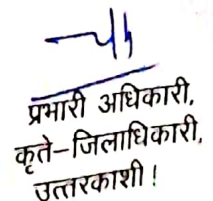 प्रभारी अधिकारी,
कृते-जिलाधिकारी,
उत्तरकाशी !